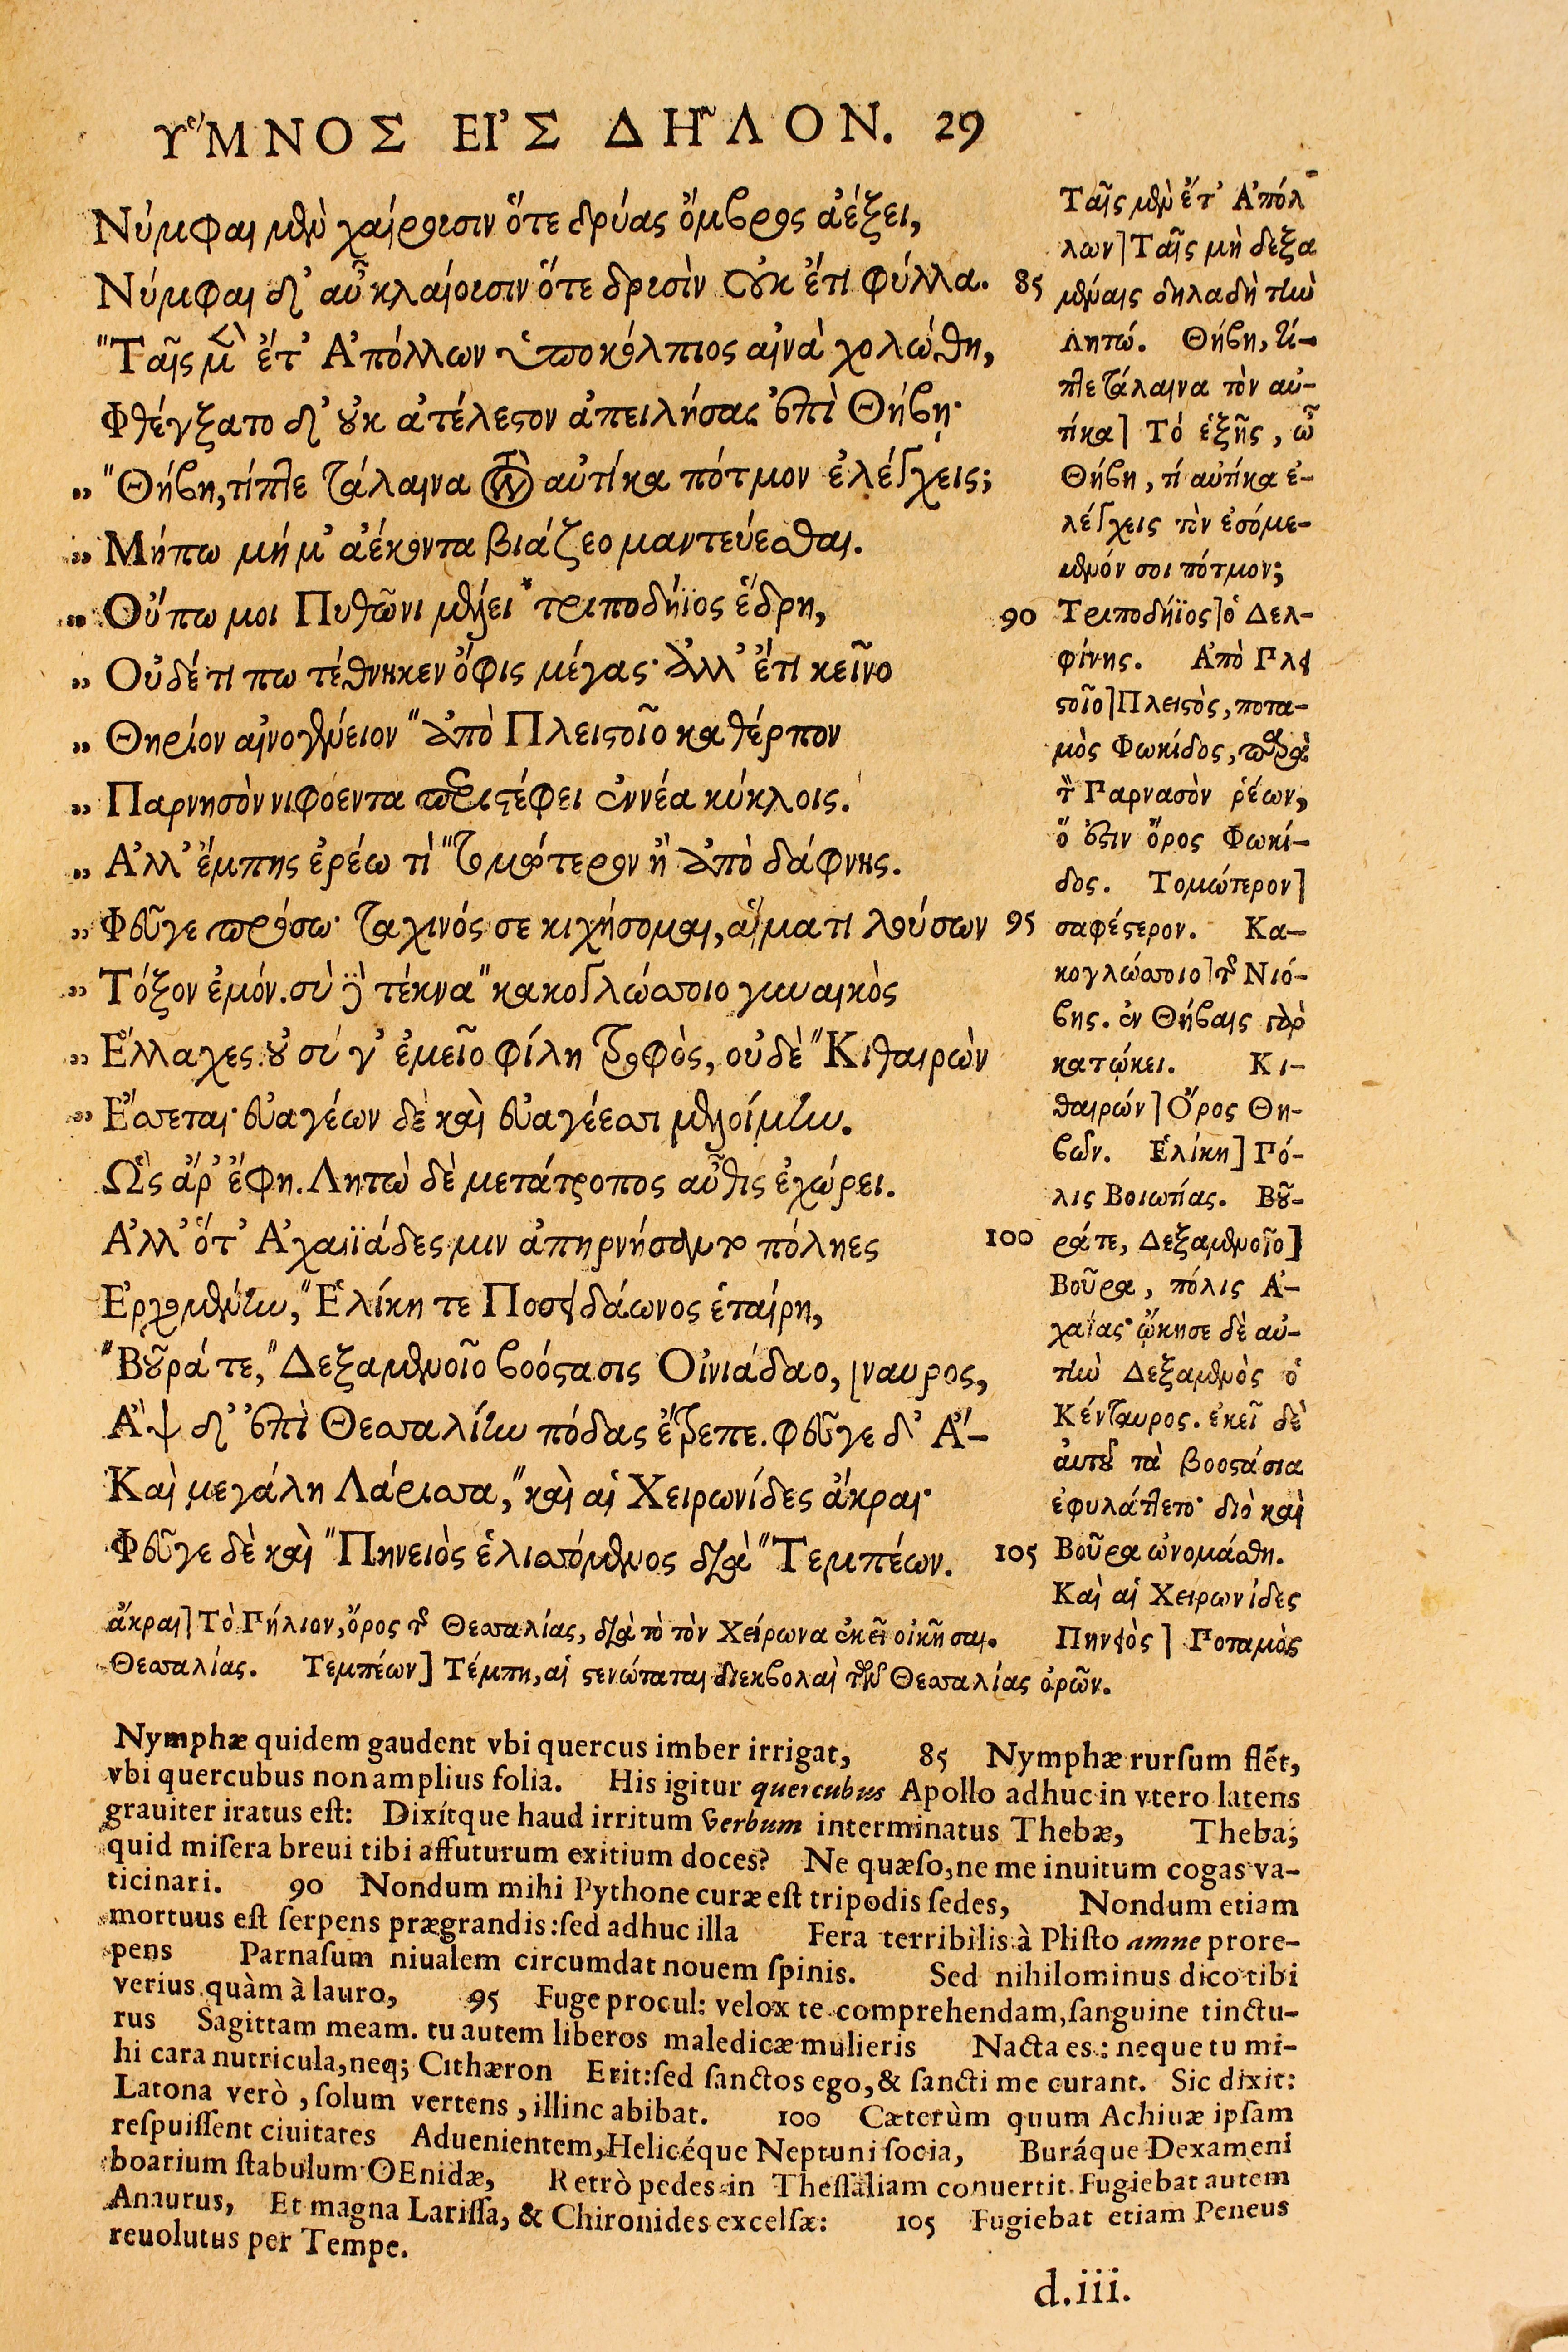 ΥΜΝΟΣ ΕΙΣ ΔΗΛΟΝ. 29
Νύμφαι μὲν χαίρουσιν ὅτε δρύας ὄμβρος ἀέξει,
Νύμφαι δ' αὖ κλαίουσιν ὅτε δρυσὶν οὐκ ἔτι φύλλα. 85
"Ταῖς μὲν ἔτ' Ἀπόλλων ὑποκόλπιος αἰνὰ χολώθη,
Φθέγξατο δ' οὐκ ἀτέλεστον ἀπειλήσας ἐπὶ Θήβῃ·
„ "Θήβη, τίπτε τάλαινα τὸν αὐτίκα πότμον ἐλέγχεις;
„ Μήπω μή μ' ἀέκοντα βιάζεο μαντεύεσθαι.
„ Οὔπω μοι Πυθῶνι μέλει *τριποδήϊος ἕδρη, 90
„ Οὐδέ τι πω τέθνηκεν ὄφις μέγας· ἀλλ' ἔτι κεῖνο
„ Θηρίον αἰνογένειον "ἀπὸ Πλειστοῖο καθέρπον
„ Παρνησὸν νιφόεντα περιστέφει ἐννέα κύκλοις.
„ Ἀλλ' ἔμπης ἐρέω τὶ "τομώτερον ἢ ἀπὸ δάφνης.
„ Φεῦγε πρόσω· ταχινός σε κιχήσομαι, αἵματι λούσων 95
„ Τόξον ἐμόν. σὺ δὲ τέκνα "κακογλώσσοιο γυναικὸς
„ Ἔλλαχες. οὐ σύ γ' ἐμεῖο φίλη τροφὸς, οὐδὲ "Κιθαιρὼν
„ Ἔσσεται· εὐαγέων δὲ καὶ εὐαγέεσσι μελοίμην.
Ὣς ἄρ' ἔφη. Λητὼ δὲ μετάτροπος αὖθις ἐχώρει.
Ἀλλ' ὅτ' Ἀχαιϊάδες μιν ἀπηρνήσαντο πόληες 100
Ἐρχομένην, "Ἑλίκη τε Ποσειδάωνος ἑταίρη,
"Βοῦρά τε, "Δεξαμενοῖο βοόστασις Οἰνιάδαο, [ναυρος,
Ἂψ δ' ἐπὶ Θεσσαλίην πόδας ἔτρεπε. φεῦγε δ' Ἄ-
Καὶ μεγάλη Λάρισσα, "καὶ αἱ Χειρωνίδες ἄκραι·
Φεῦγε δὲ καὶ "Πηνειὸς ἑλισσόμενος διὰ "Τεμπέων. 105
Ταῖς μὲν ἔτ' Ἀπόλ
λων] Ταῖς μὴ δεξα
μέναις δηλαδὴ τὴν
Λητώ. Θήβη, τί-
πτε τάλαινα τὸν αὐ-
τίκα] Τὸ ἑξῆς, ὦ
Θήβη, τί αὐτίκα ἐ-
λέγχεις τὸν ἐσόμε-
μενόν σοι πότμον;
Τριποδήϊος] ὁ Δελ-
φίνης. Ἀπὸ Πλει
στοῖο] Πλειστὸς, ποτα-
μὸς Φωκίδος, παρὰ
τὸν Παρνασὸν ῥέων,
ὅ ἐστιν ὄρος Φωκί-
δος. Τομώτερον]
σαφέστερον. Κα-
κογλώσσοιο] τῆς Νιό-
βης. ἐν Θήβαις γὰρ
κατῴκει. Κι-
θαιρών] Ὄρος Θη-
βῶν. Ἑλίκη] Πό-
λις Βοιωτίας. Βοῦ-
ρά τε, Δεξαμενοῖο]
Βοῦρα, πόλις Ἀ-
χαΐας· ᾤκησε δὲ αὐ-
τὴν Δεξαμενὸς ὁ
Κένταυρος. ἐκεῖ δὲ
αὐτοῦ τὰ βοοστάσια
ἐφυλάττετο· διὸ καὶ
Βοῦρα ὠνομάσθη.
Καὶ αἱ Χειρωνίδες
ἄκραι] Τὸ Πήλιον, ὄρος τῆς Θεσσαλίας, διὰ τὸ τὸν Χείρωνα ἐκεῖ οἰκῆσαι. Πηνειὸς] Ποταμὸς
Θεσσαλίας. Τεμπέων] Τέμπη, αἱ στενώταται διεκβολαὶ τῶν Θεσσαλίας ὀρῶν.
Nymphæ quidem gaudent vbi quercus imber irrigat, 85 Nymphæ rurſum flẽt,
vbi quercubus non amplius folia. His igitur quercubus Apollo adhuc in vtero latens
grauiter iratus eſt: Dixítque haud irritum verbum interminatus Thebæ, Theba;
quid miſera breui tibi affuturum exitium doces? Ne quæſo, ne me inuitum cogas va-
ticinari. 90 Nondum mihi Pythone curæ eſt tripodis ſedes, Nondum etiam
mortuus eſt ſerpens prægrandis: ſed adhuc illa Fera terribilis à Pliſto amne prore-
pens Parnaſum niualem circumdat nouem ſpinis. Sed nihilominus dico tibi
verius quàm à lauro, 95 Fuge procul: velox te comprehendam, ſanguine tinctu-
rus Sagittam meam. tu autem liberos maledicæ mulieris Nacta es: neque tu mi-
hi cara nutricula, neq; Cithæron Erit: ſed ſanctos ego, & ſancti me curant. Sic dixit:
Latona verò, ſolum vertens, illinc abibat. 100 Cæterùm quum Achiuæ ipſam
reſpuiſſent ciuitates Aduenientem, Helicéque Neptuni ſocia, Buráque Dexameni
boarium ſtabulum OEnidæ, Retrò pedes in Theſſaliam conuertit. Fugiebat autem
Anaurus, Et magna Lariſſa, & Chironides excelſæ: 105 Fugiebat etiam Peneus
reuolutus per Tempe.
d.iii.